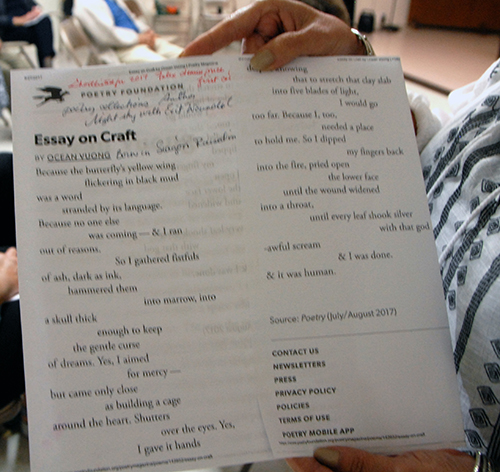 POETRY FOUNDATION
poetry collections Author
Night sky with Exit Wounds
Essay on Craft
BY OCEAN VUONG Born in Saigon
Because the butterfly's yellow wing
flickering in black mud
was a word
stranded by its language.
Because no one else
was coming — & I ran
out of reasons.
So I gathered fistfuls
of ash, dark as ink,
hammered them
into marrow, into
a skull thick
enough to keep
the gentle curse
of dreams. Yes, I aimed
for mercy —
but came only close
as building a cage
around the heart. Shutters
over the eyes. Yes,
I gave it hands
knowing
that to stretch that clay slab
into five blades of light,
I would go
too far. Because I, too,
needed a place
to hold me. So I dipped
my fingers back
into the fire, pried open
the lower face
until the wound widened
into a throat,
until every leaf shook silver
with that god
-awful scream
& I was done.
& it was human.
Source: Poetry (July/August 2017)
CONTACT US
NEWSLETTERS
PRESS
PRIVACY POLICY
POLICIES
TERMS OF USE
POETRY MOBILE APP